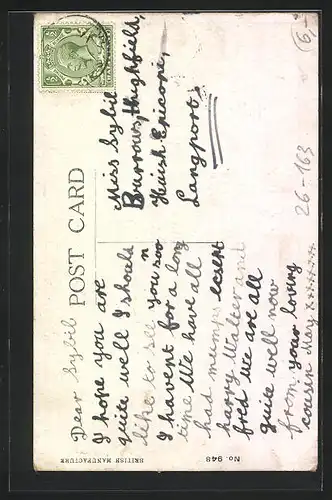 POST CARD
Dear Sybil
I hope you are
quite well I should
like to see you soo
n
I havent for a long
time We have all
had mumps exsert
harry Walter and
fred We are all
quite well now
from your loving
cousin May xxxxxxx
Miss Sybil
Burrows, Highfield,
Huish Episcopi,
Langport,
BRITISH MANUFACTURE
No. 948
26-163
6,-